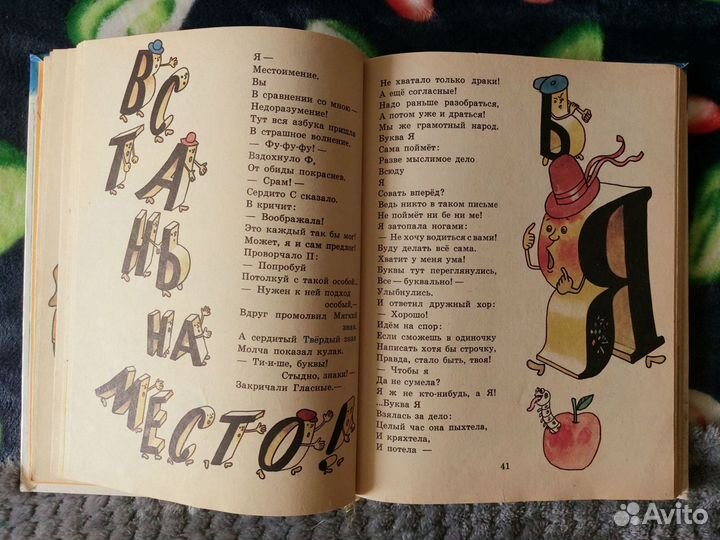 ВС
ТА
НЬ
НА
МЕСТО!
Я —
Местоимение.
Вы
В сравнении со мною —
Недоразумение!
Тут вся азбука пришла
В страшное волнение.
— Фу-фу-фу! —
Вздохнуло Ф,
От обиды покраснев.
— Срам! —
Сердито С сказало.
В кричит:
— Воображала!
Это каждый так бы мог!
Может, я и сам предлог!
Проворчало П:
— Попробуй
Потолкуй с такой особой.
— Нужен к ней подход
особый,—
Вдруг промолвил Мягкий
знак.
А сердитый Твёрдый знак
Молча показал кулак.
— Ти-и-ше, буквы!
Стыдно, знаки! —
Закричали Гласные.—
Не хватало только драки!
А ещё согласные!
Надо раньше разобраться,
А потом уже и драться!
Мы же грамотный народ.
Буква Я
Сама поймёт:
Разве мыслимое дело
Всюду
Я
Совать вперёд?
Ведь никто в таком письме
Не поймёт ни бе ни ме!
Я затопала ногами:
— Не хочу водиться с вами!
Буду делать всё сама.
Хватит у меня ума!
Буквы тут переглянулись,
Все — буквально! —
Улыбнулись,
И ответил дружный хор:
— Хорошо!
Идём на спор:
Если сможешь в одиночку
Написать хотя бы строчку,
Правда, стало быть, твоя!
— Чтобы я
Да не сумела?
Я ж не кто-нибудь, а Я!
...Буква Я
Взялась за дело:
Целый час она пыхтела,
И кряхтела,
И потела —
41
Ь
Я
Avito